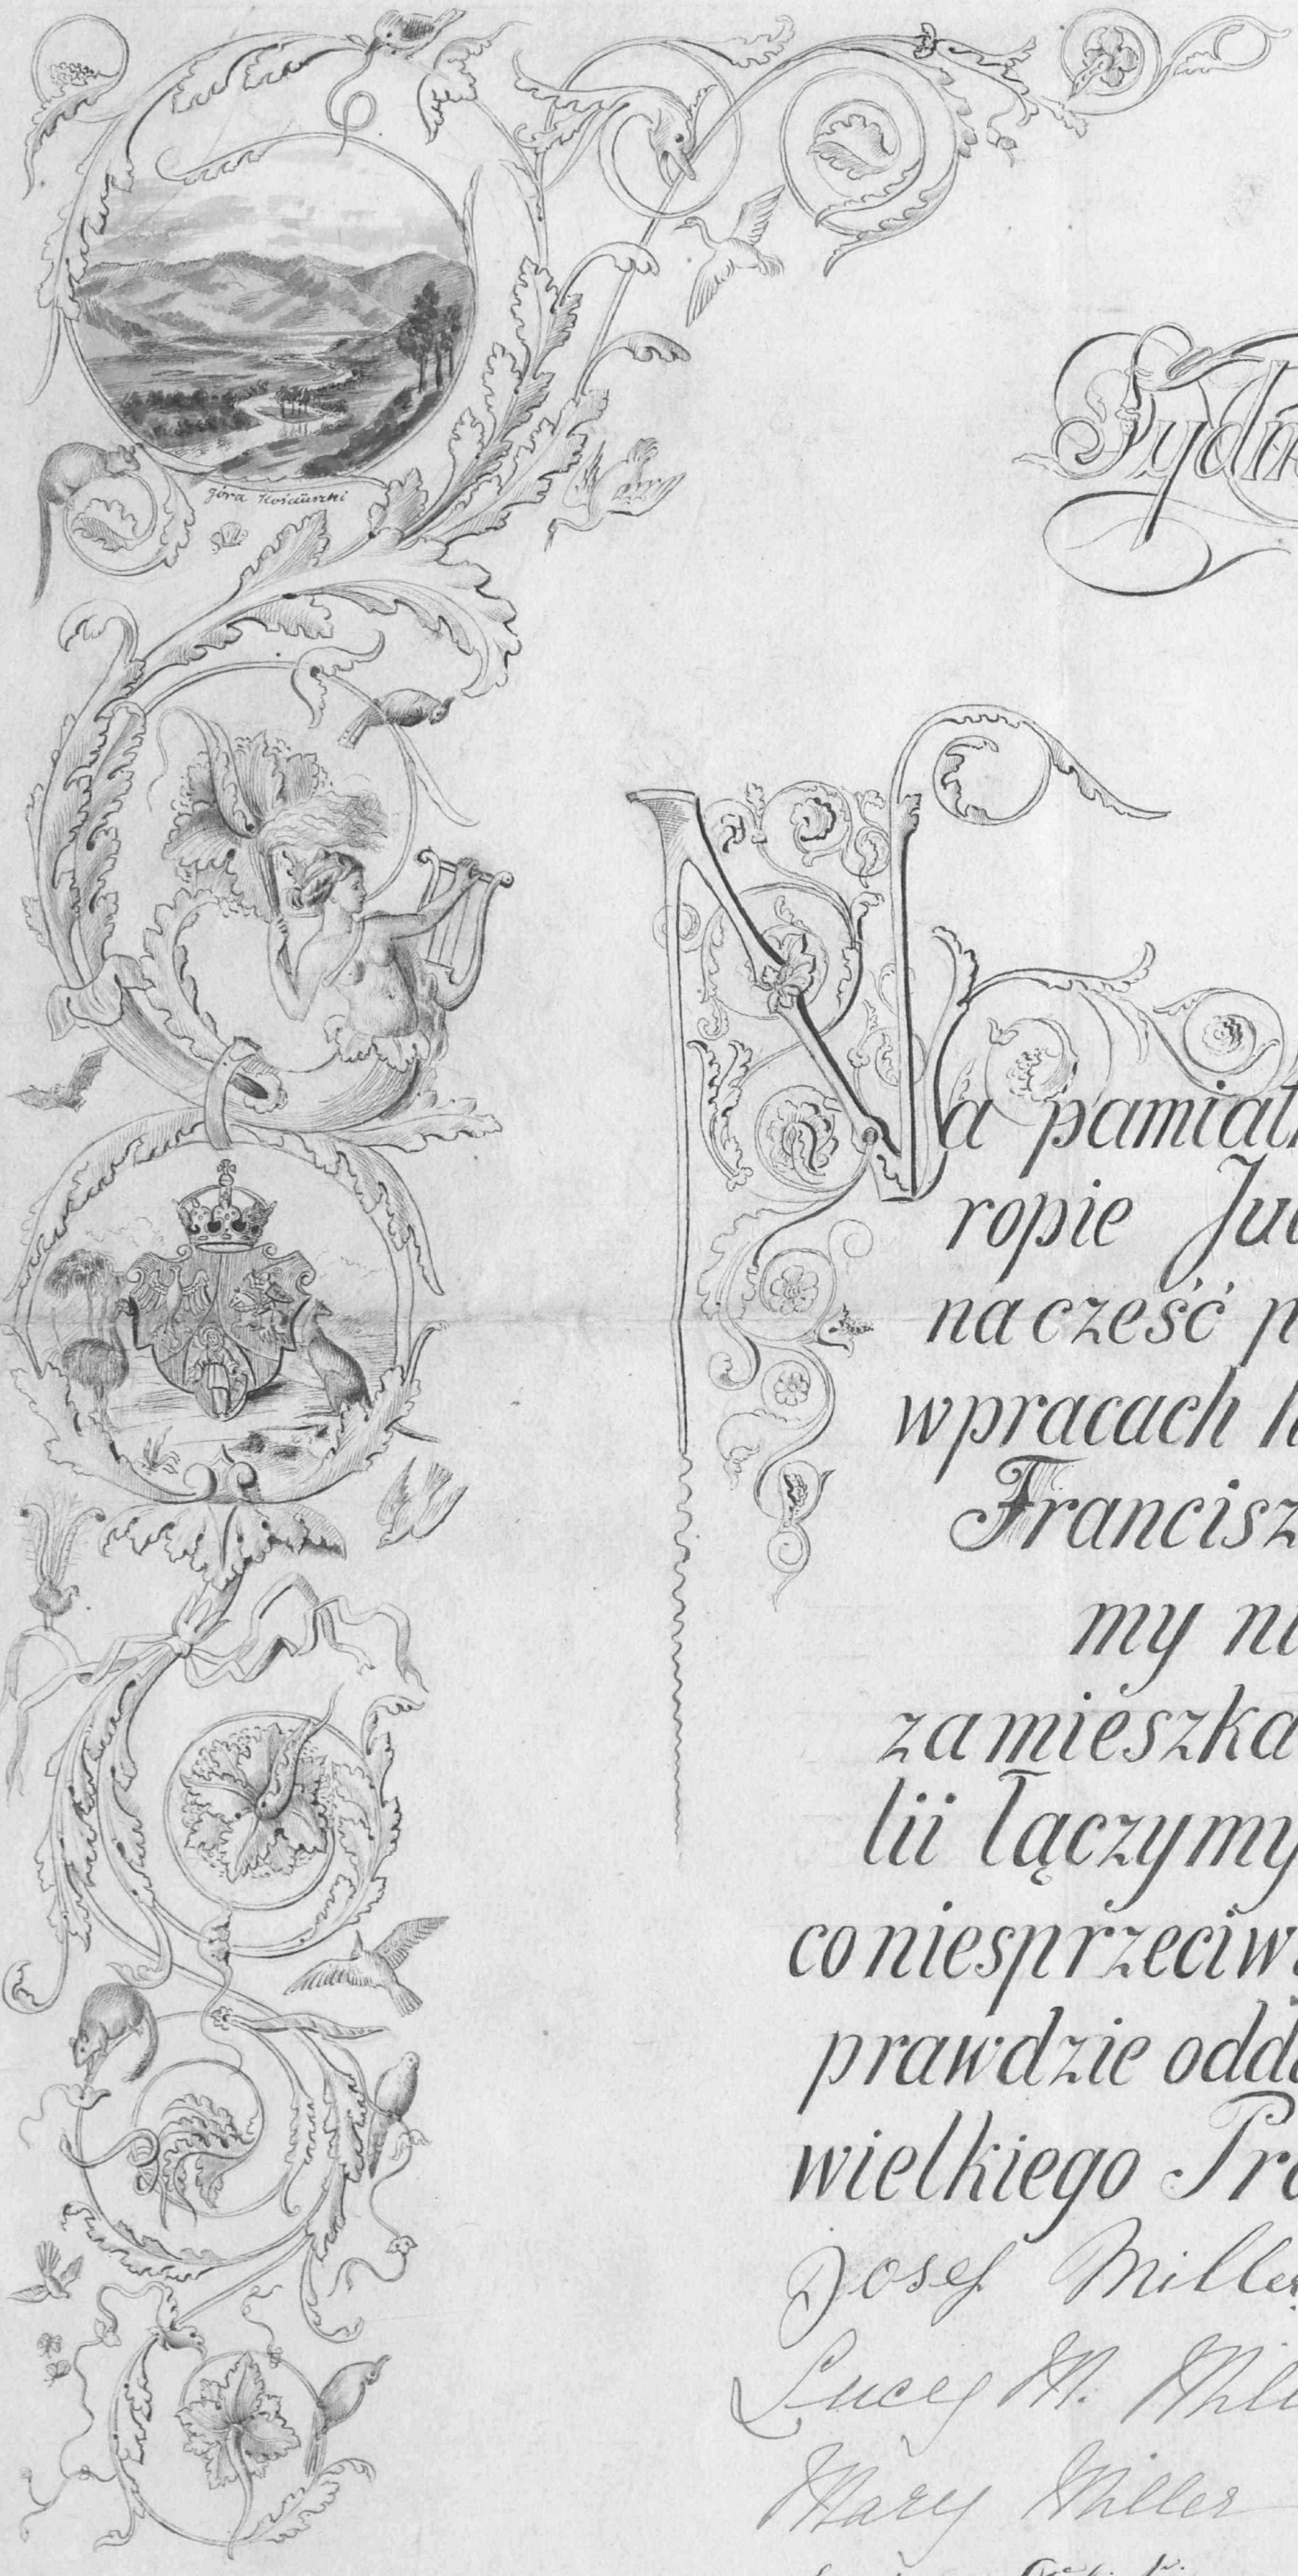 góra Kościuszki
Sydn
Na pamiat
ropie Ju
na cześć p
w pracach
Francisz
my ni
zamieszka
lii łączymy
co niesprzeciw
prawdzie odd
wielkiego Pr
Josef Miller
Lucy M. Mill
Mary Miller